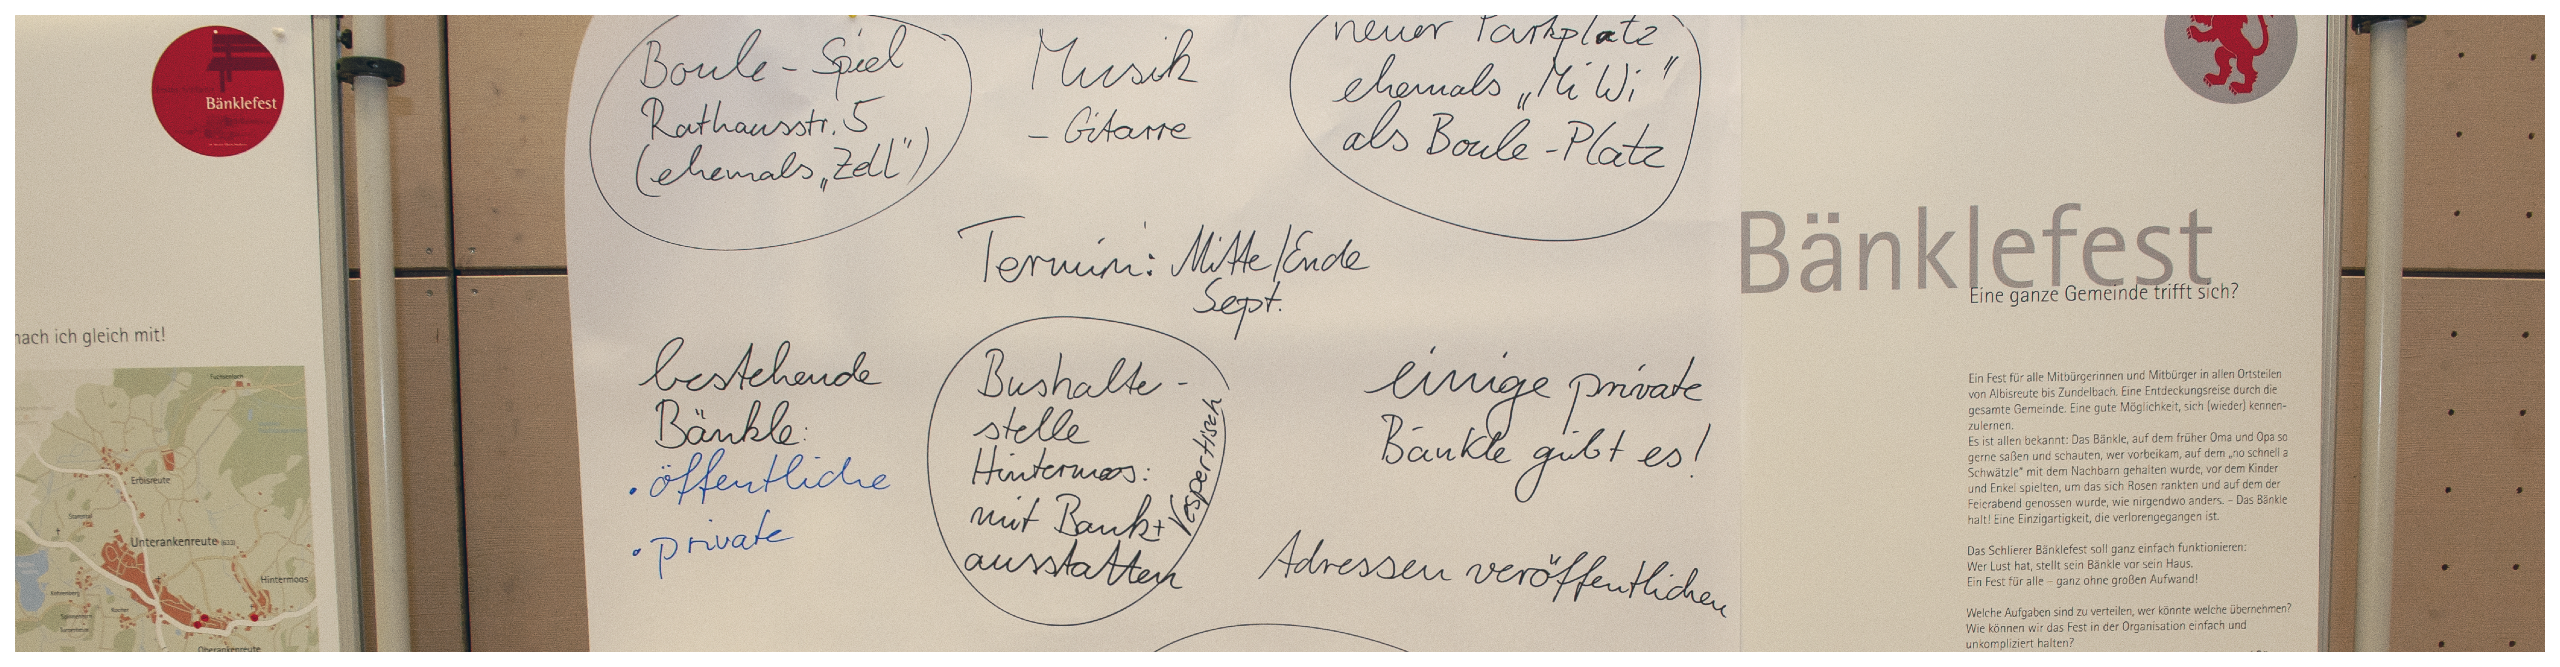 Bänklefest
nach ich gleich mit!
Fuchsenloch
Erbisreute
Unterankenreute (633)
Hintermoos
Oberankenreute
Boule-Spiel
Rathausstr. 5
(ehemals „Zdl")
Musik
- Gitarre
neuer Parkplatz
ehemals „Mi Wi"
als Boule-Platz
Termin: Mitte/Ende
Sept.
bestehende
Bänkle:
• öffentliche
• private
Bushalte-
stelle
Hintermoos:
mit Bank + Vespertisch
ausstatten
einige private
Bänkle gibt es!
Adressen veröffentlichen
Bänklefest
Eine ganze Gemeinde trifft sich?
Ein Fest für alle Mitbürgerinnen und Mitbürger in allen Ortsteilen
von Albisreute bis Zundelbach. Eine Entdeckungsreise durch die
gesamte Gemeinde. Eine gute Möglichkeit, sich (wieder) kennen-
zulernen.
Es ist allen bekannt: Das Bänkle, auf dem früher Oma und Opa so
gerne saßen und schauten, wer vorbeikam, auf dem „no schnell a
Schwätzle" mit dem Nachbarn gehalten wurde, vor dem Kinder
und Enkel spielten, um das sich Rosen rankten und auf dem der
Feierabend genossen wurde, wie nirgendwo anders. – Das Bänkle
halt! Eine Einzigartigkeit, die verlorengegangen ist.
Das Schlierer Bänklefest soll ganz einfach funktionieren:
Wer Lust hat, stellt sein Bänkle vor sein Haus.
Ein Fest für alle – ganz ohne großen Aufwand!
Welche Aufgaben sind zu verteilen, wer könnte welche übernehmen?
Wie können wir das Fest in der Organisation einfach und
unkompliziert halten?